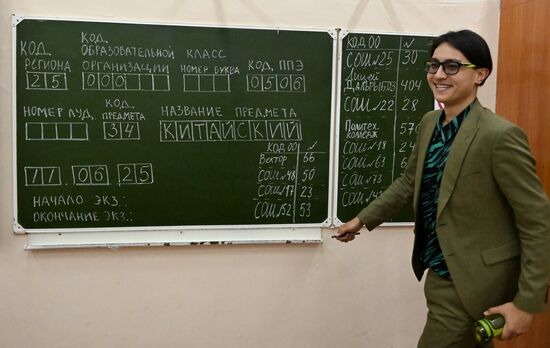 КОД РЕГИОНА
25
КОД ОБРАЗОВАТЕЛЬНОЙ ОРГАНИЗАЦИИ
КЛАСС
НОМЕР БУКВА
КОД ППЭ
0506
НОМЕР АУД.
КОД ПРЕДМЕТА
34
НАЗВАНИЕ ПРЕДМЕТА
КИТАЙСКИЙ
11.06 25
НАЧАЛО ЭКЗ.:
ОКОНЧАНИЕ ЭКЗ.:
КОД ОО
Вектор 66
СОШ №48 50
СОШ №17 23
СОШ №52 53
КОД ОО
СОШ №25 30
Лицей
404
СОШ №22 28
Политех.
колледж
570
СОШ №18
СОШ №63
СОШ №73